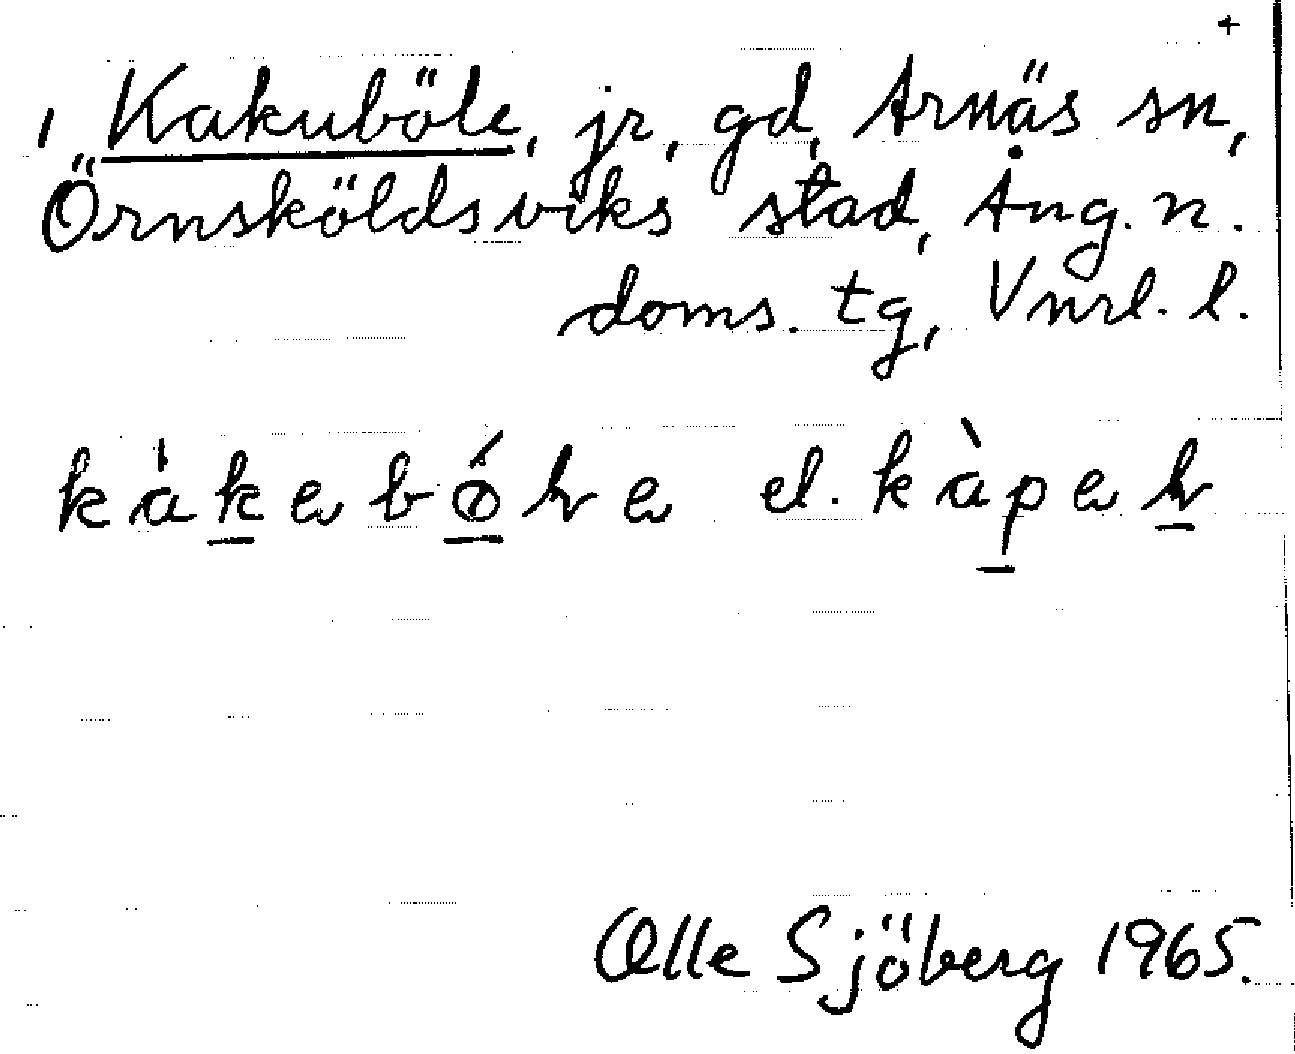 +
1 Kakuböle, jr, gd, Arnäs sn,
Örnsköldsviks stad, Ång. n.
doms. tg, Vnrl. l.
el.
Olle Sjöberg 1965.